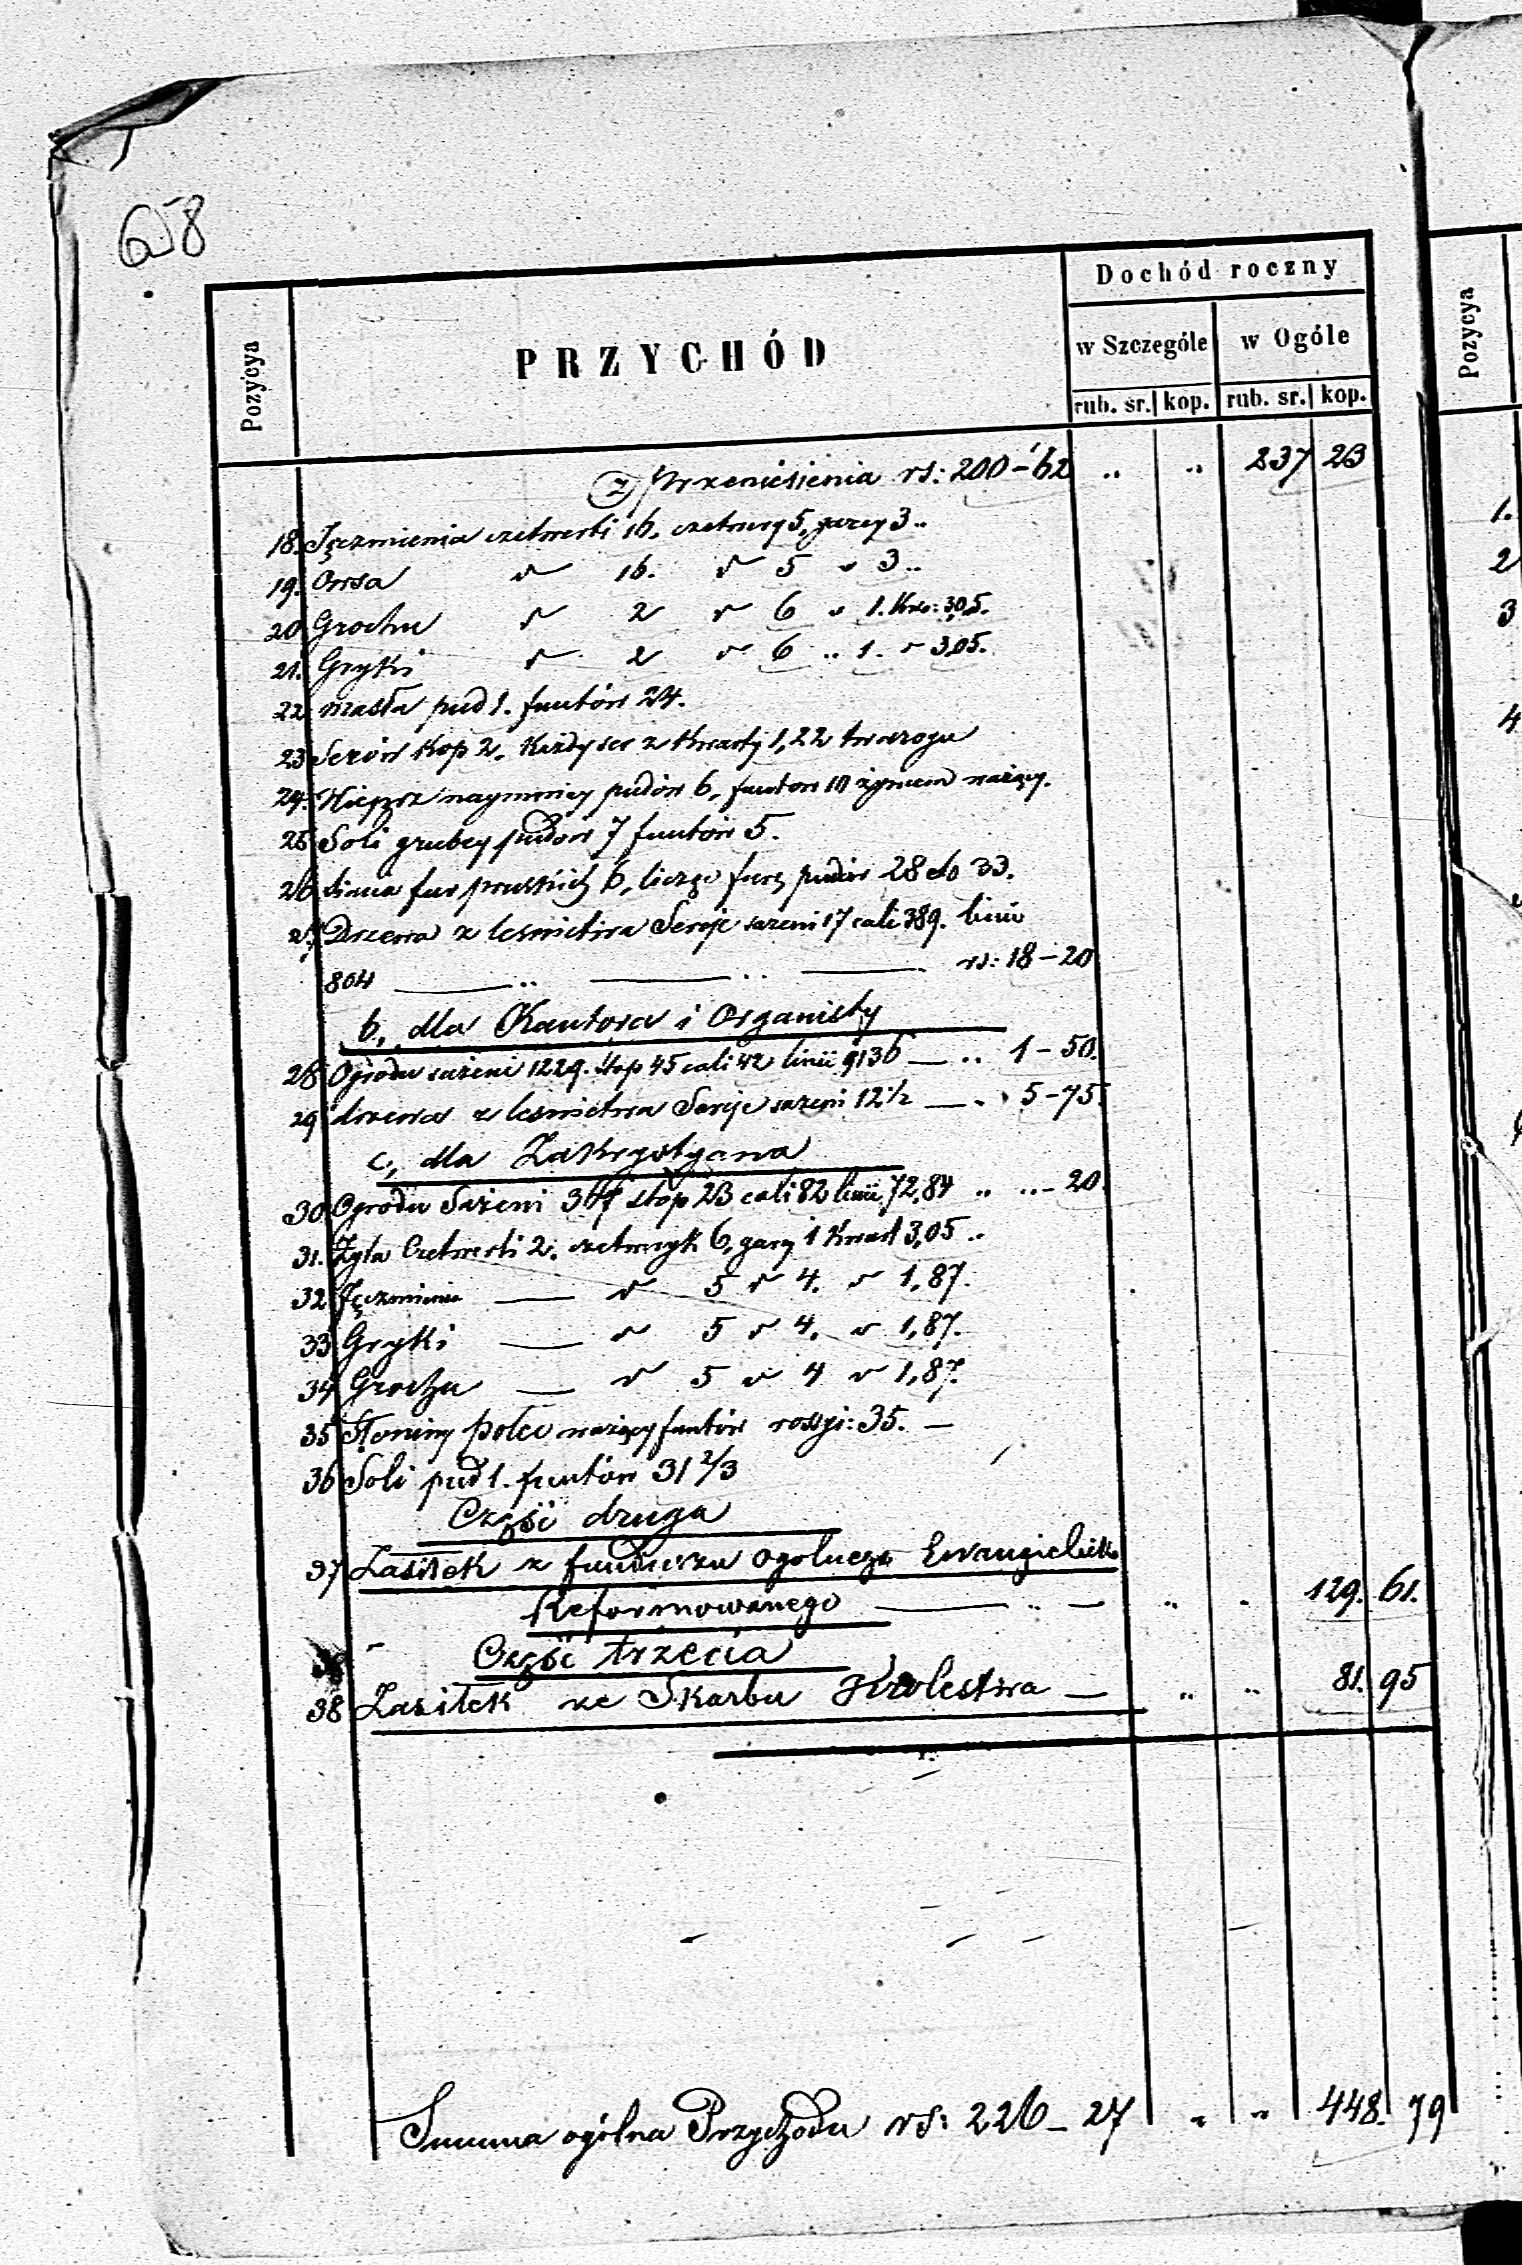 658
Pozycya
PRZYCHÓD
Dochód roczny
w Szczególe w Ogóle
rub. sr. kop. rub. sr. kop.
Z Przeniesienia rs: 200-62 .. .. 237 23
18. Jęczmienia czetwerti 16, czetwery 5, garcy 3..
19. Owsa " 16. " 5 " 3..
20 Grochu " 2 " 6 " 1. Kw: 3,05.
21. Gryki " 2 " 6 .. 1. " 3,05.
22 masła pud 1. funtów 24.
23 Serów Kop 2. Każdy ser z Kwarty 1,22 twarogu
24. Wieprz naymniey pudów 6, funtów 10 żywcem ważący.
25 Soli grubey pudów 7 funtów 5.
26 Siana fur pruskich 6, licząc furę pudów 28 do 33.
27 Drzewa z lesnictwa Sereje sazeni 17 cali 389. linii
804 .. .. rs: 18-20
b, dla Kantora i Organisty
28 Ogrodu sażeni 1229. stop 45 cali 42 linii 9136 .. 1-50.
29 drzewa z lesnictwa Sereje sazeni 12 1/2 5-75.
c, dla Zakrystyana
30 Ogrodu Sażeni 307 stop 23 cali 82 linii 72,84 .. ..-20.
31. Żyta Czetwerti 2. czetweryk 6, garcy 1 Kwart 3,05 ..
32 Jęczmienia " 5 " 4. " 1,87.
33 Gryki " 5 " 4. " 1,87.
34 Grochu " 5 " 4 " 1,87.
35 Słoniny połeć ważący funtów rossyi: 35.
36 Soli pud 1. funtów 31 2/3
Część druga
37 Zasiłek z funduszu ogolnego Ewangielicko
Reformowanego .. .. . 129. 61.
Część trzecia
38 Zasiłek ze Skarbu Krolestwa .. .. 81. 95
Summa ogólna Przychodu rs: 226-27 " " 448. 79
Pozycya
1.
2
3
4